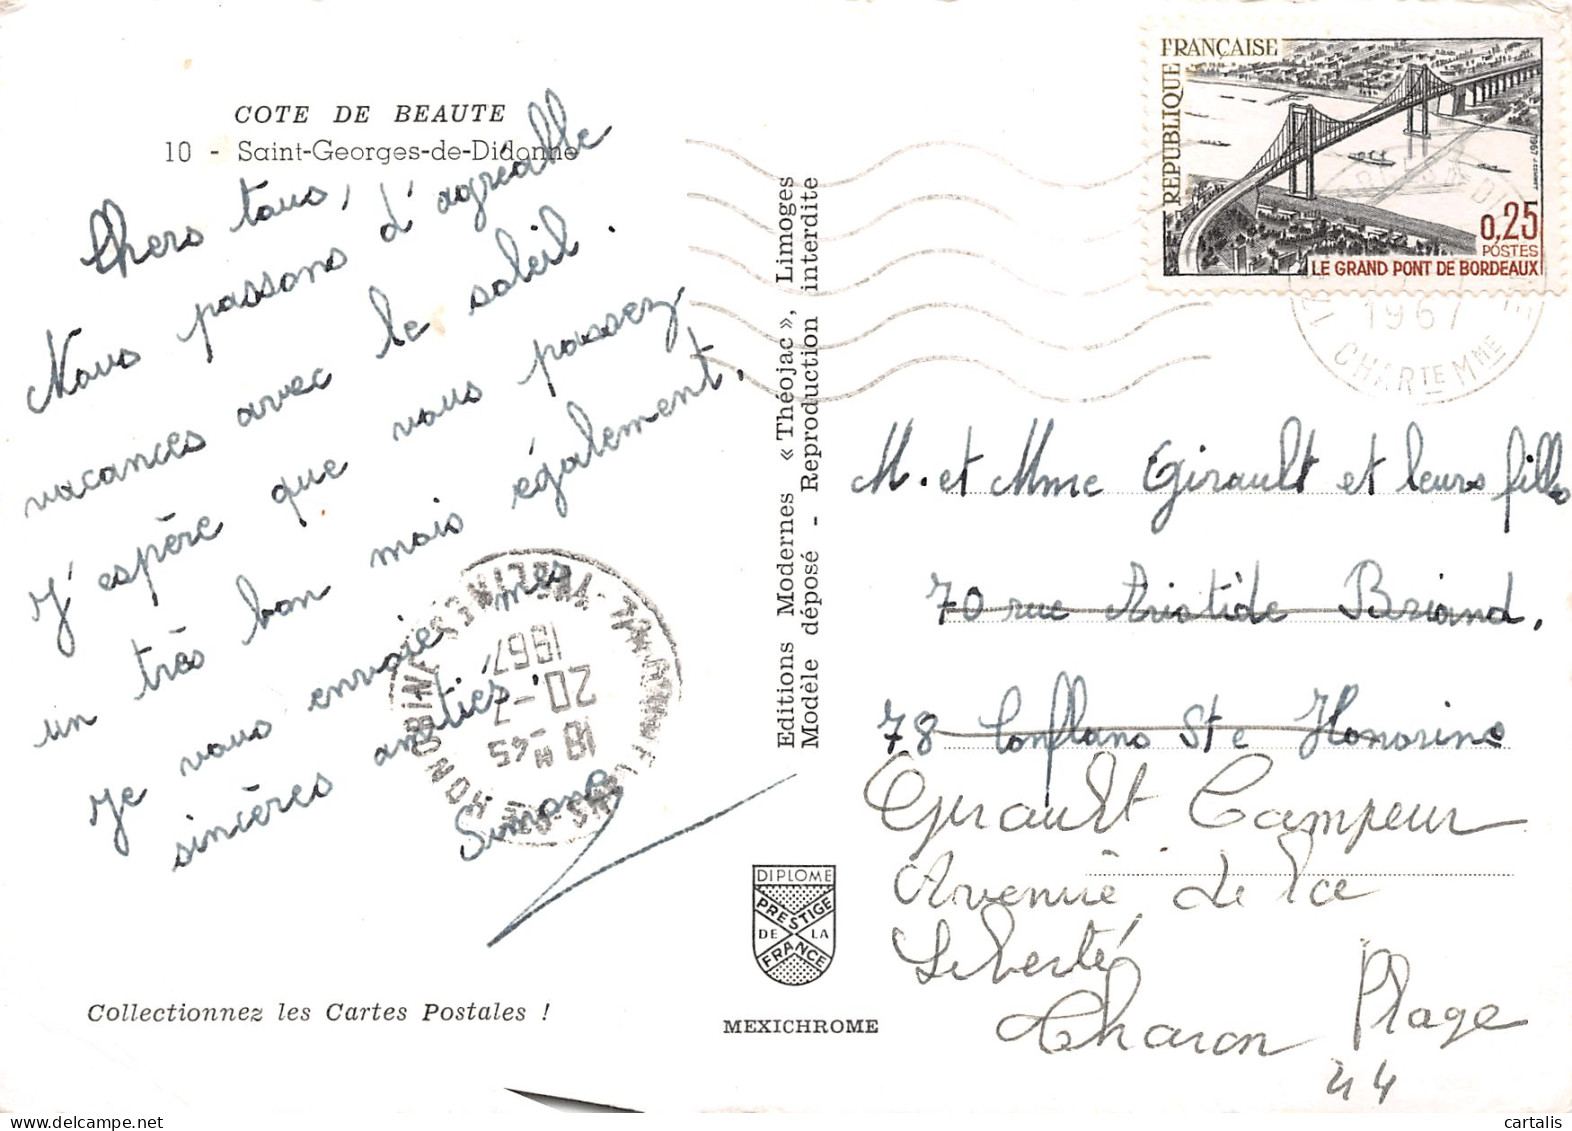 COTE DE BEAUTE
10 - Saint-Georges-de-Didonne
Chers tous,
Nous passons d'agréable
vacances avec le soleil.
J'espère que vous passez
un très bon mois également.
Je vous envoie mes
sincères amitiés.
Simone
Collectionnez les Cartes Postales !
Editions Modernes « Théojac », Limoges
Modèle déposé - Reproduction interdite
DIPLOME
PRESTIGE
DE LA
FRANCE
MEXICHROME
REPUBLIQUE FRANÇAISE
1967
0,25
POSTES
LE GRAND PONT DE BORDEAUX
1967
CHARTE MME
18 H 45
20-7
1967
YVELINES
HONORINE
M. et Mme Girault et leurs filles
70 rue Aristide Briand,
78 Conflans Ste Honorine
Girault Campeur
Avenue de la
Liberté
Charon Plage
44
cartalis